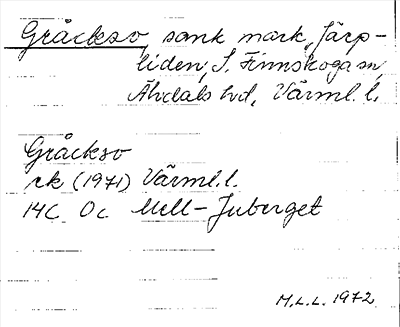 Gråckso, sank mark, Järp-
liden, S. Finnskoga sn,
Älvdals hd, Värml. l.
Gråckso
rk (1971) Värml. l.
14C 0c Mell-Juberget
M.L.L. 1972